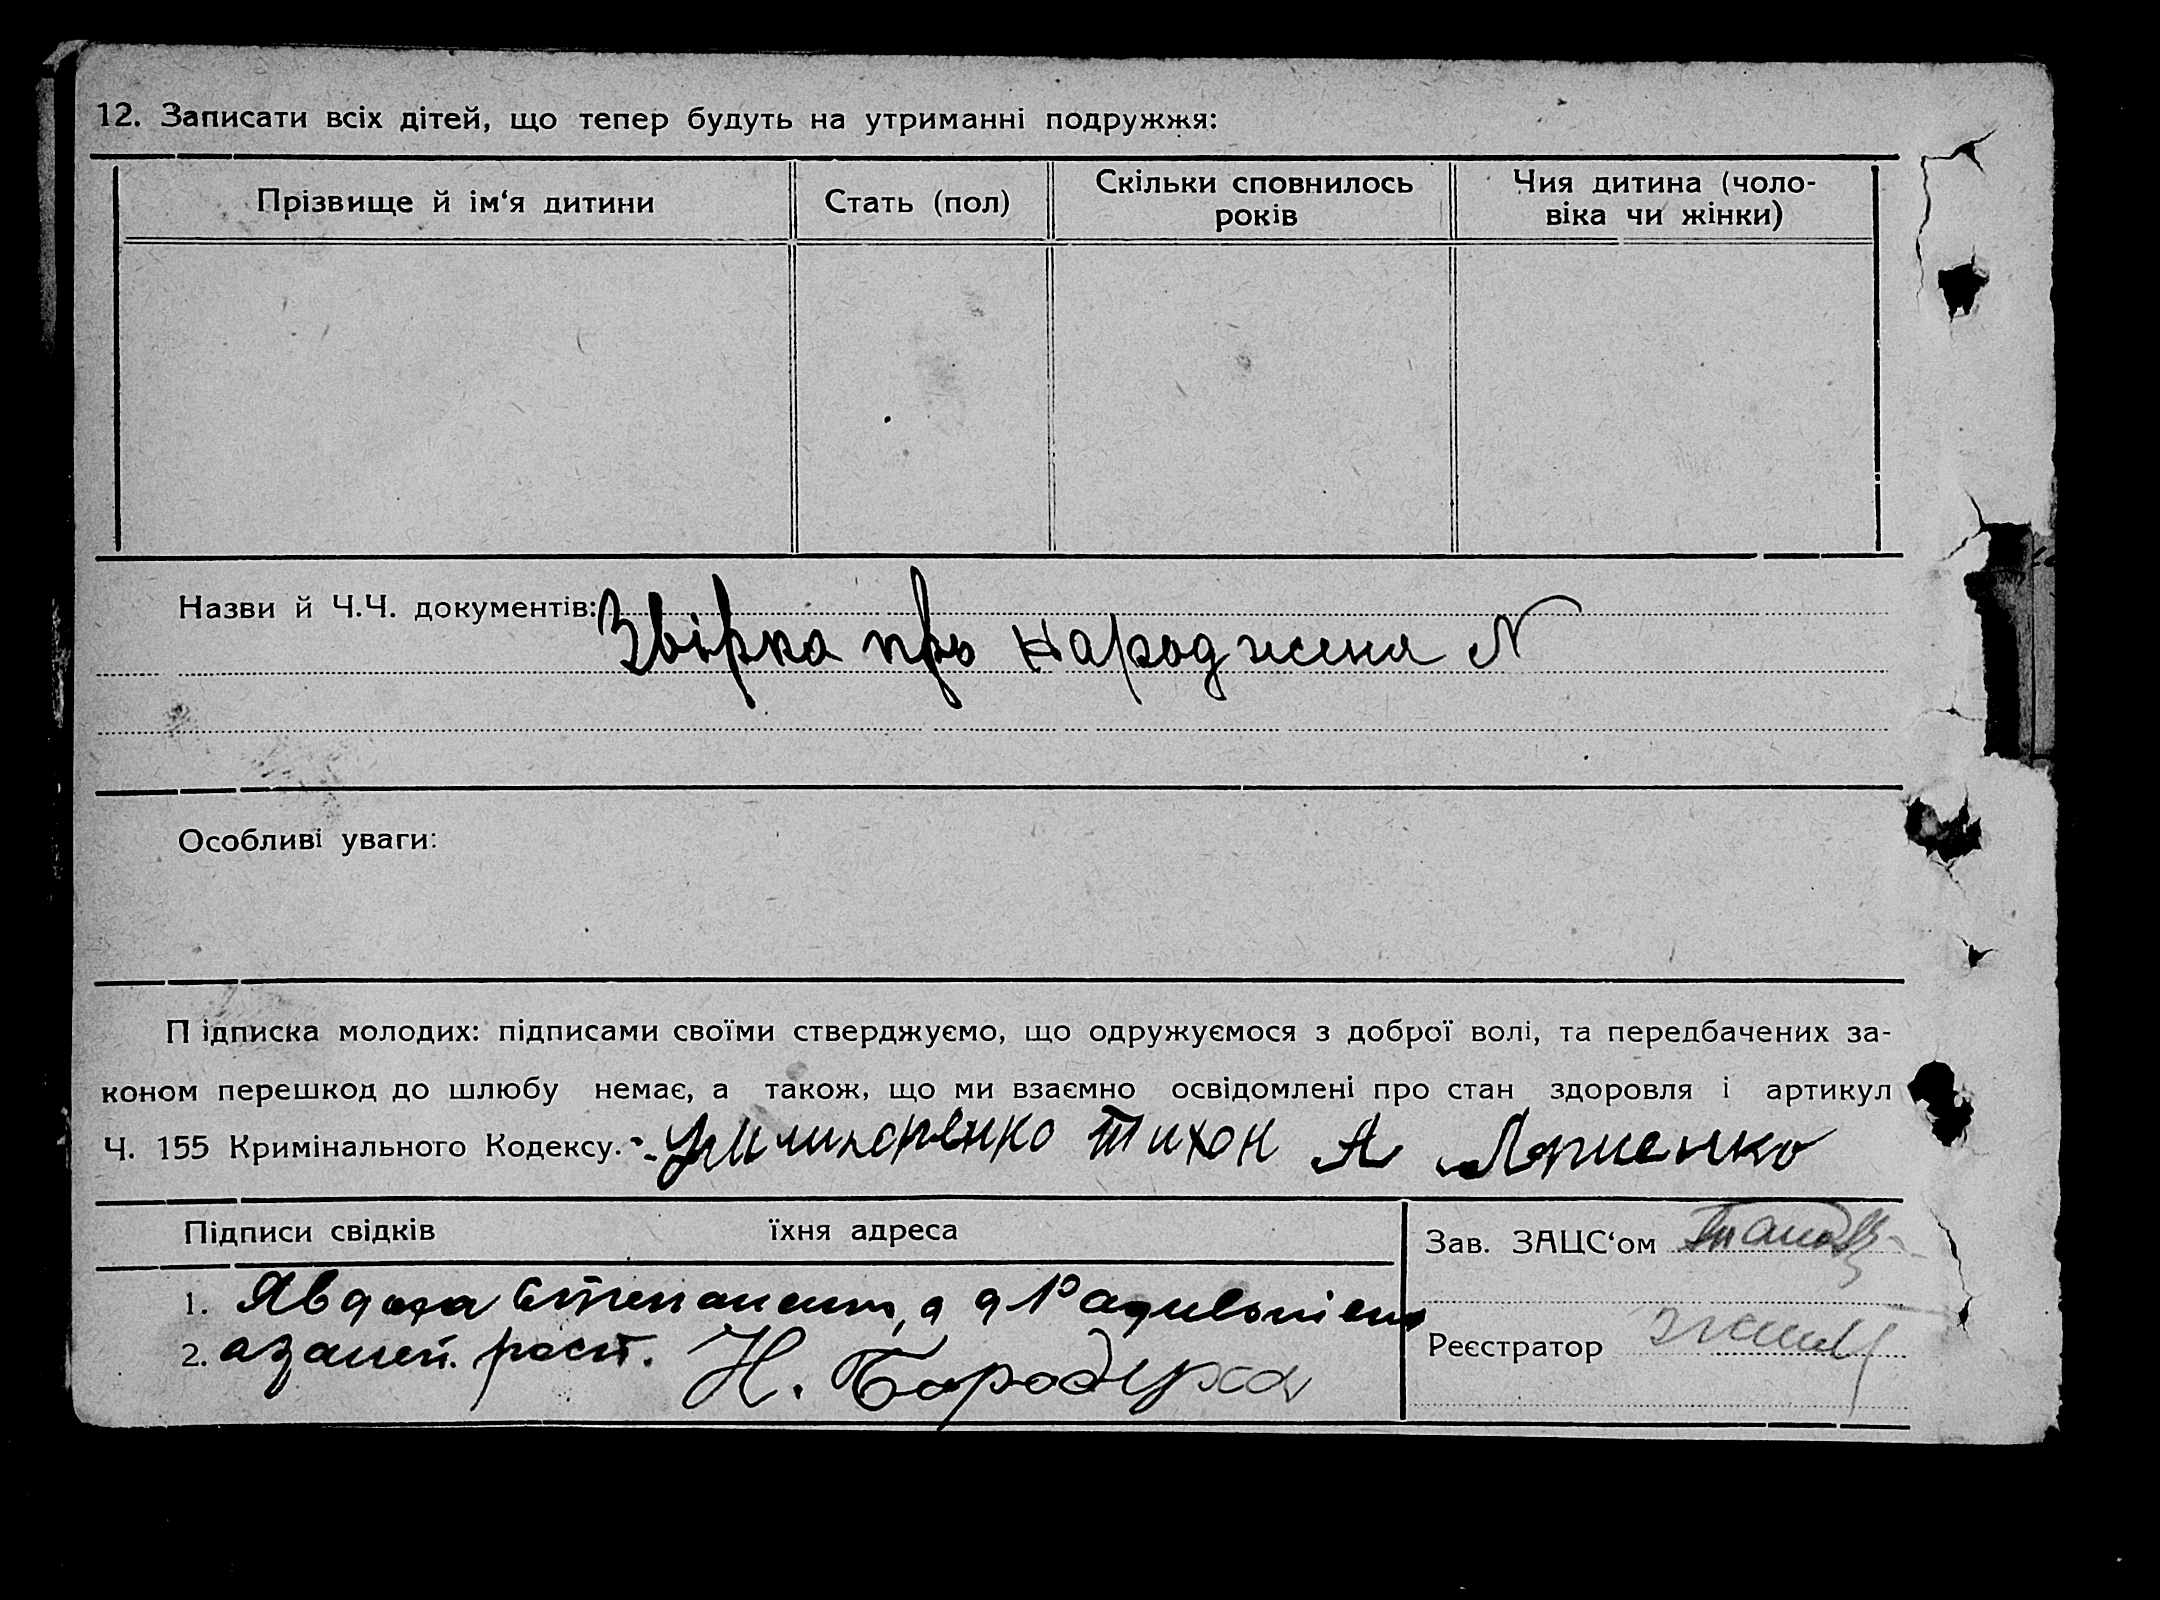 12. Записати всіх дітей, що тепер будуть на утриманні подружжя:
Прізвище й ім‘я дитини
Стать (пол)
Скільки сповнилось
років
Чия дитина (чоло-
віка чи жінки)
Назви й Ч.Ч. документів:
Звірка про народженя N
Особливі уваги:
Підписка молодих: підписами своїми стверджуємо, що одружуємося з доброї волі, та передбачених за-
коном перешкод до шлюбу немає, а також, що ми взаємно освідомлені про стан здоровля і артикул
Ч. 155 Кримінального Кодексу. Тихон А
Підписи свідків їхня адреса
Зав. ЗАЦС‘ом
1.
2. Н.
Реєстратор